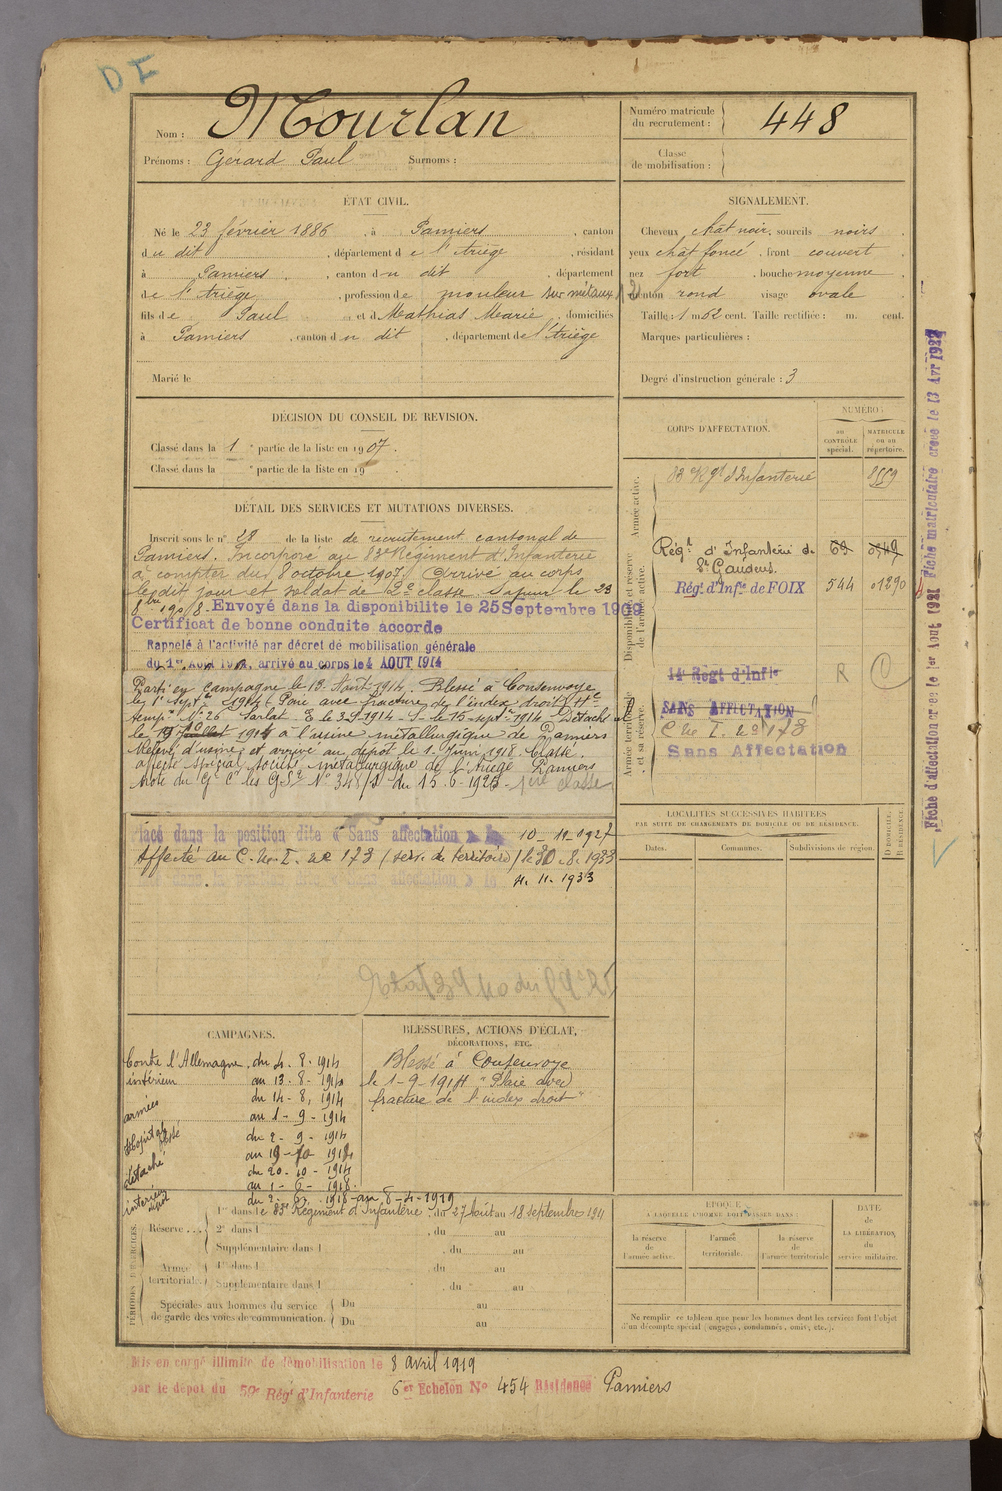 DI
Nom : Mourlan
Prénoms : Gérard Paul Surnoms :
Numéro matricule du recrutement : 448
Classe de mobilisation :
ÉTAT CIVIL.
Né le 23 février 1886, à Pamiers, canton
du dit, département de l'Ariège, résidant
à Pamiers, canton du dit, département
de l'Ariège, profession de mouleur sur métaux
fils de Paul et de Mathias Marie, domiciliés
à Pamiers, canton du dit, département de l'Ariège
Marié le
SIGNALEMENT.
Cheveux chât noir, sourcils noirs
yeux chât foncé, front couvert
nez fort, bouche moyenne
menton rond visage ovale
Taille : 1 m 62 cent. Taille rectifiée : m. cent.
Marques particulières :
Degré d'instruction générale : 3
DÉCISION DU CONSEIL DE REVISION.
Classé dans la 1 e partie de la liste en 1907.
Classé dans la e partie de la liste en 19
DÉTAIL DES SERVICES ET MUTATIONS DIVERSES.
Inscrit sous le n° 28 de la liste de recrutement cantonal de
Pamiers. Incorporé au 83e Régiment d'Infanterie
à compter du 8 octobre 1907. Arrivé au corps
le dit jour et soldat de 2e classe. le 23
8bre 190 8 - Envoyé dans la disponibilite le 25 Septembre 1909
Certificat de bonne conduite accorde
Rappelé à l'activité par décret de mobilisation générale
du 1er Aout 1914, arrivé au corps le 4 AOUT 1914
Parti en campagne le 13 Aout 1914. Blessé à Consenvoye
le 1er Septbre 1914 (Plaie avec fracture de l'index droit) Hce
tempre N° 26 Sarlat - E le 3-9-1914 - S. le 15 septbre 1914 Détaché
le 19 1914 à l'usine métallurgique de Pamiers
Relevé d'usine et arrivé au dépôt le 1. Juin 1918. Classé
affecté spécial Société métallurgique de l'Ariège Pamiers
Note du Gal Ct les G.S. N° 348/S du 15.6.1925 - 1ère classe
Placé dans la position dite « Sans affectation » le 10 11 1927
Affecté au C.M.I. n° 173 (serv. du territoire) le 30.8.1933
Placé dans la position dite « Sans affectation » le 11. 11. 1933
CORPS D'AFFECTATION.
NUMÉRO :
au CONTRÔLE spécial.
MATRICULE ou au répertoire.
Armée active.
83e Rgt d'Infanterie 8559
Disponibilité et réserve de l'armée active.
Régt d'Infanterie de St Gaudens 69
Régt. d'Infie de FOIX 544 01290
14e Régt d'Infie R C
Armée territoriale et sa réserve.
SANS AFFECTATION
C.M. I. n° 173
Sans Affectation
Fiche d'affectation créée le 1er Aout 1921 Fiche matriculaire créée le 13 Avr 1927
LOCALITÉS SUCCESSIVES HABITÉES
PAR SUITE DE CHANGEMENTS DE DOMICILE OU DE RÉSIDENCE.
Dates. Communes. Subdivisions de région. D DOMICILE. R RÉSIDENCE.
CAMPAGNES.
Contre l'Allemagne, du 4 - 8 - 1914
intérieur au 13 - 8 - 1914
armées du 14 - 8 - 1914
au 1 - 9 - 1914
Hopital blessé du 2 - 9 - 1914
au 19 - 10 - 1914
détaché du 20 - 10 - 1914
au 1 - 6 - 1918.
intérieur dépôt du 2 - 6 - 1918 - au 8 - 4 - 1919
BLESSURES, ACTIONS D'ÉCLAT,
DÉCORATIONS, ETC.
Blessé à Consenvoye
le 1-9-1914 " Plaie avec
fracture de l'index droit "
PÉRIODES D'EXERCICES.
Réserve . . . 1re dans le 83e Régiment d'Infanterie du 27 Août au 18 septembre 1911
2e dans l , du au
Supplémentaire dans l , du au
Armée territoriale. 1re dans l , du au
Supplémentaire dans l , du au
Spéciales aux hommes du service de garde des voies de communication. Du au
Du au
ÉPOQUE
À LAQUELLE L'HOMME DOIT PASSER DANS :
la réserve de l'armée active. l'armée territoriale. la réserve de l'armée territoriale
DATE de LA LIBÉRATION du service militaire.
Ne remplir ce tableau que pour les hommes dont les services font l'objet
d'un décompte spécial (engagés, condamnés, omis, etc.).
Mis en congé illimité de démobilisation le 8 avril 1919
par le dépôt du 59e Régt d'Infanterie 6e Echelon N° 454 Résidence Pamiers